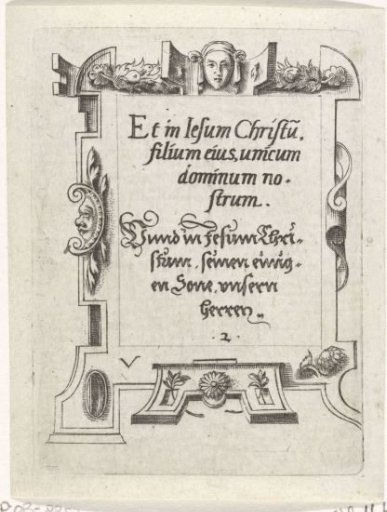 Et in Iesum Christũ,
filium eius, unicum
dominum no-
strum.
Vund in Jesum Chri-
stum, seinen einig-
en Sone, vnsern
herren.
. 2 .
V